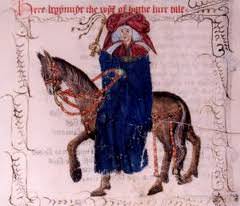 Here bygynneth the wyf of bathe hire tale